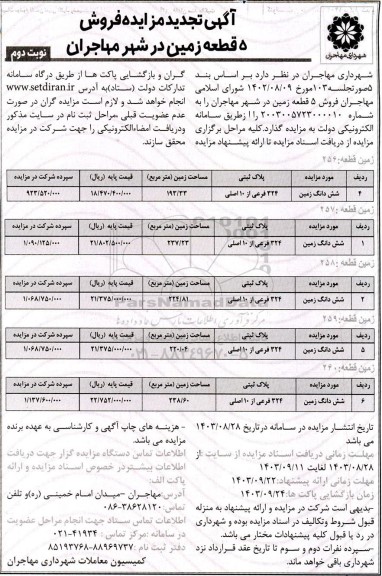 شهرداری مهاجران
آگهی تجدید مزایده فروش
۵ قطعه زمین در شهر مهاجران
نوبت دوم
شهرداری مهاجران در نظر دارد بر اساس بند
۵ صورتجلسه ۱۰۳ مورخ ۱۴۰۲/۰۸/۰۹ شورای اسلامی
مهاجران فروش ۵ قطعه زمین در شهر مهاجران را به
شماره ۲۰۰۳۰۰۵۷۲۳۰۰۰۰۱۰ را از طریق سامانه
الکترونیکی دولت به مزایده گذارد. کلیه مراحل برگزاری
مزایده از دریافت اسناد مزایده تا ارائه پیشنهاد مزایده
گران و بازگشایی پاکت ها از طریق درگاه سامانه
تدارکات دولت (ستاد) به آدرس www.setdiran.ir
انجام خواهد شد و لازم است مزایده گران در صورت
عدم عضویت قبلی، مراحل ثبت نام در سایت مذکور
و دریافت امضاء الکترونیکی را جهت شرکت در مزایده
محقق سازند.
زمین قطعه ۲۵۴:
ردیف مورد مزایده پلاک ثبتی مساحت زمین (متر مربع) قیمت پایه (ریال) سپرده شرکت در مزایده
۴ شش دانگ زمین ۳۲۴ فرعی از ۱۰ اصلی ۱۹۲/۳۳ ۱۸/۴۷۰/۴۰۰/۰۰۰ ۹۲۳/۵۲۰/۰۰۰
زمین قطعه ۲۵۷:
ردیف مورد مزایده پلاک ثبتی مساحت زمین (متر مربع) قیمت پایه (ریال) سپرده شرکت در مزایده
۱ شش دانگ زمین ۳۲۴ فرعی از ۱۰ اصلی ۲۳۷/۲۳ ۲۱/۸۰۲/۵۰۰/۰۰۰ ۱/۰۹۰/۱۲۵/۰۰۰
زمین قطعه ۲۵۸:
ردیف مورد مزایده پلاک ثبتی مساحت زمین (متر مربع) قیمت پایه (ریال) سپرده شرکت در مزایده
۲ شش دانگ زمین ۳۲۴ فرعی از ۱۰ اصلی ۲۲۴/۸۱ ۲۱/۳۷۵/۰۰۰/۰۰۰ ۱/۰۶۸/۷۵۰/۰۰۰
زمین قطعه ۲۵۹:
ردیف مورد مزایده پلاک ثبتی مساحت زمین (متر مربع) قیمت پایه (ریال) سپرده شرکت در مزایده
۵ شش دانگ زمین ۳۲۴ فرعی از ۱۰ اصلی ۲۲۰/۰۴ ۲۱/۳۷۵/۰۰۰/۰۰۰ ۱/۰۶۸/۷۵۰/۰۰۰
زمین قطعه ۲۶۰:
ردیف مورد مزایده پلاک ثبتی مساحت زمین (متر مربع) قیمت پایه (ریال) سپرده شرکت در مزایده
۶ شش دانگ زمین ۳۲۴ فرعی از ۱۰ اصلی ۲۳۸/۶۰ ۲۲/۷۵۲/۰۰۰/۰۰۰ ۱/۱۳۷/۶۰۰/۰۰۰
تاریخ انتشار مزایده در سامانه در تاریخ ۱۴۰۳/۰۸/۲۸
می باشد
مهلت زمانی دریافت اسناد مزایده از سایت: از
۱۴۰۳/۰۸/۲۸ لغایت ۱۴۰۳/۰۹/۱۱
مهلت زمانی ارائه پیشنهاد: ۱۴۰۳/۰۹/۲۲
زمان بازگشایی پاکت ها: ۱۴۰۳/۰۹/۲۴
-بدیهی است شرکت در مزایده و ارائه پیشنهاد به منزله
قبول شروط و تکالیف در اسناد مزایده بوده و شهرداری
در رد یا قبول کلیه پیشنهادات مختار می باشد.
-سپرده نفرات دوم و سوم تا تاریخ عقد قرارداد نزد
شهرداری باقی خواهد ماند.
- هزینه های چاپ آگهی و کارشناسی به عهده برنده
مزایده می باشد.
اطلاعات تماس دستگاه مزایده گزار جهت دریافت
اطلاعات بیشتر در خصوص اسناد مزایده و ارائه
پاکت الف:
آدرس مهاجران –میدان امام خمینی (ره) و تلفن
تماس: ۳۸۶۲۸۱۲۰-۰۸۶
اطلاعات تماس ستاد جهت انجام مراحل عضویت
در سامانه: مرکز تماس: ۴۱۹۳۴-۰۲۱
دفتر ثبت نام: ۸۸۹۶۹۷۳۷-۸۵۱۹۳۷۶۸
کمیسیون معاملات شهرداری مهاجران